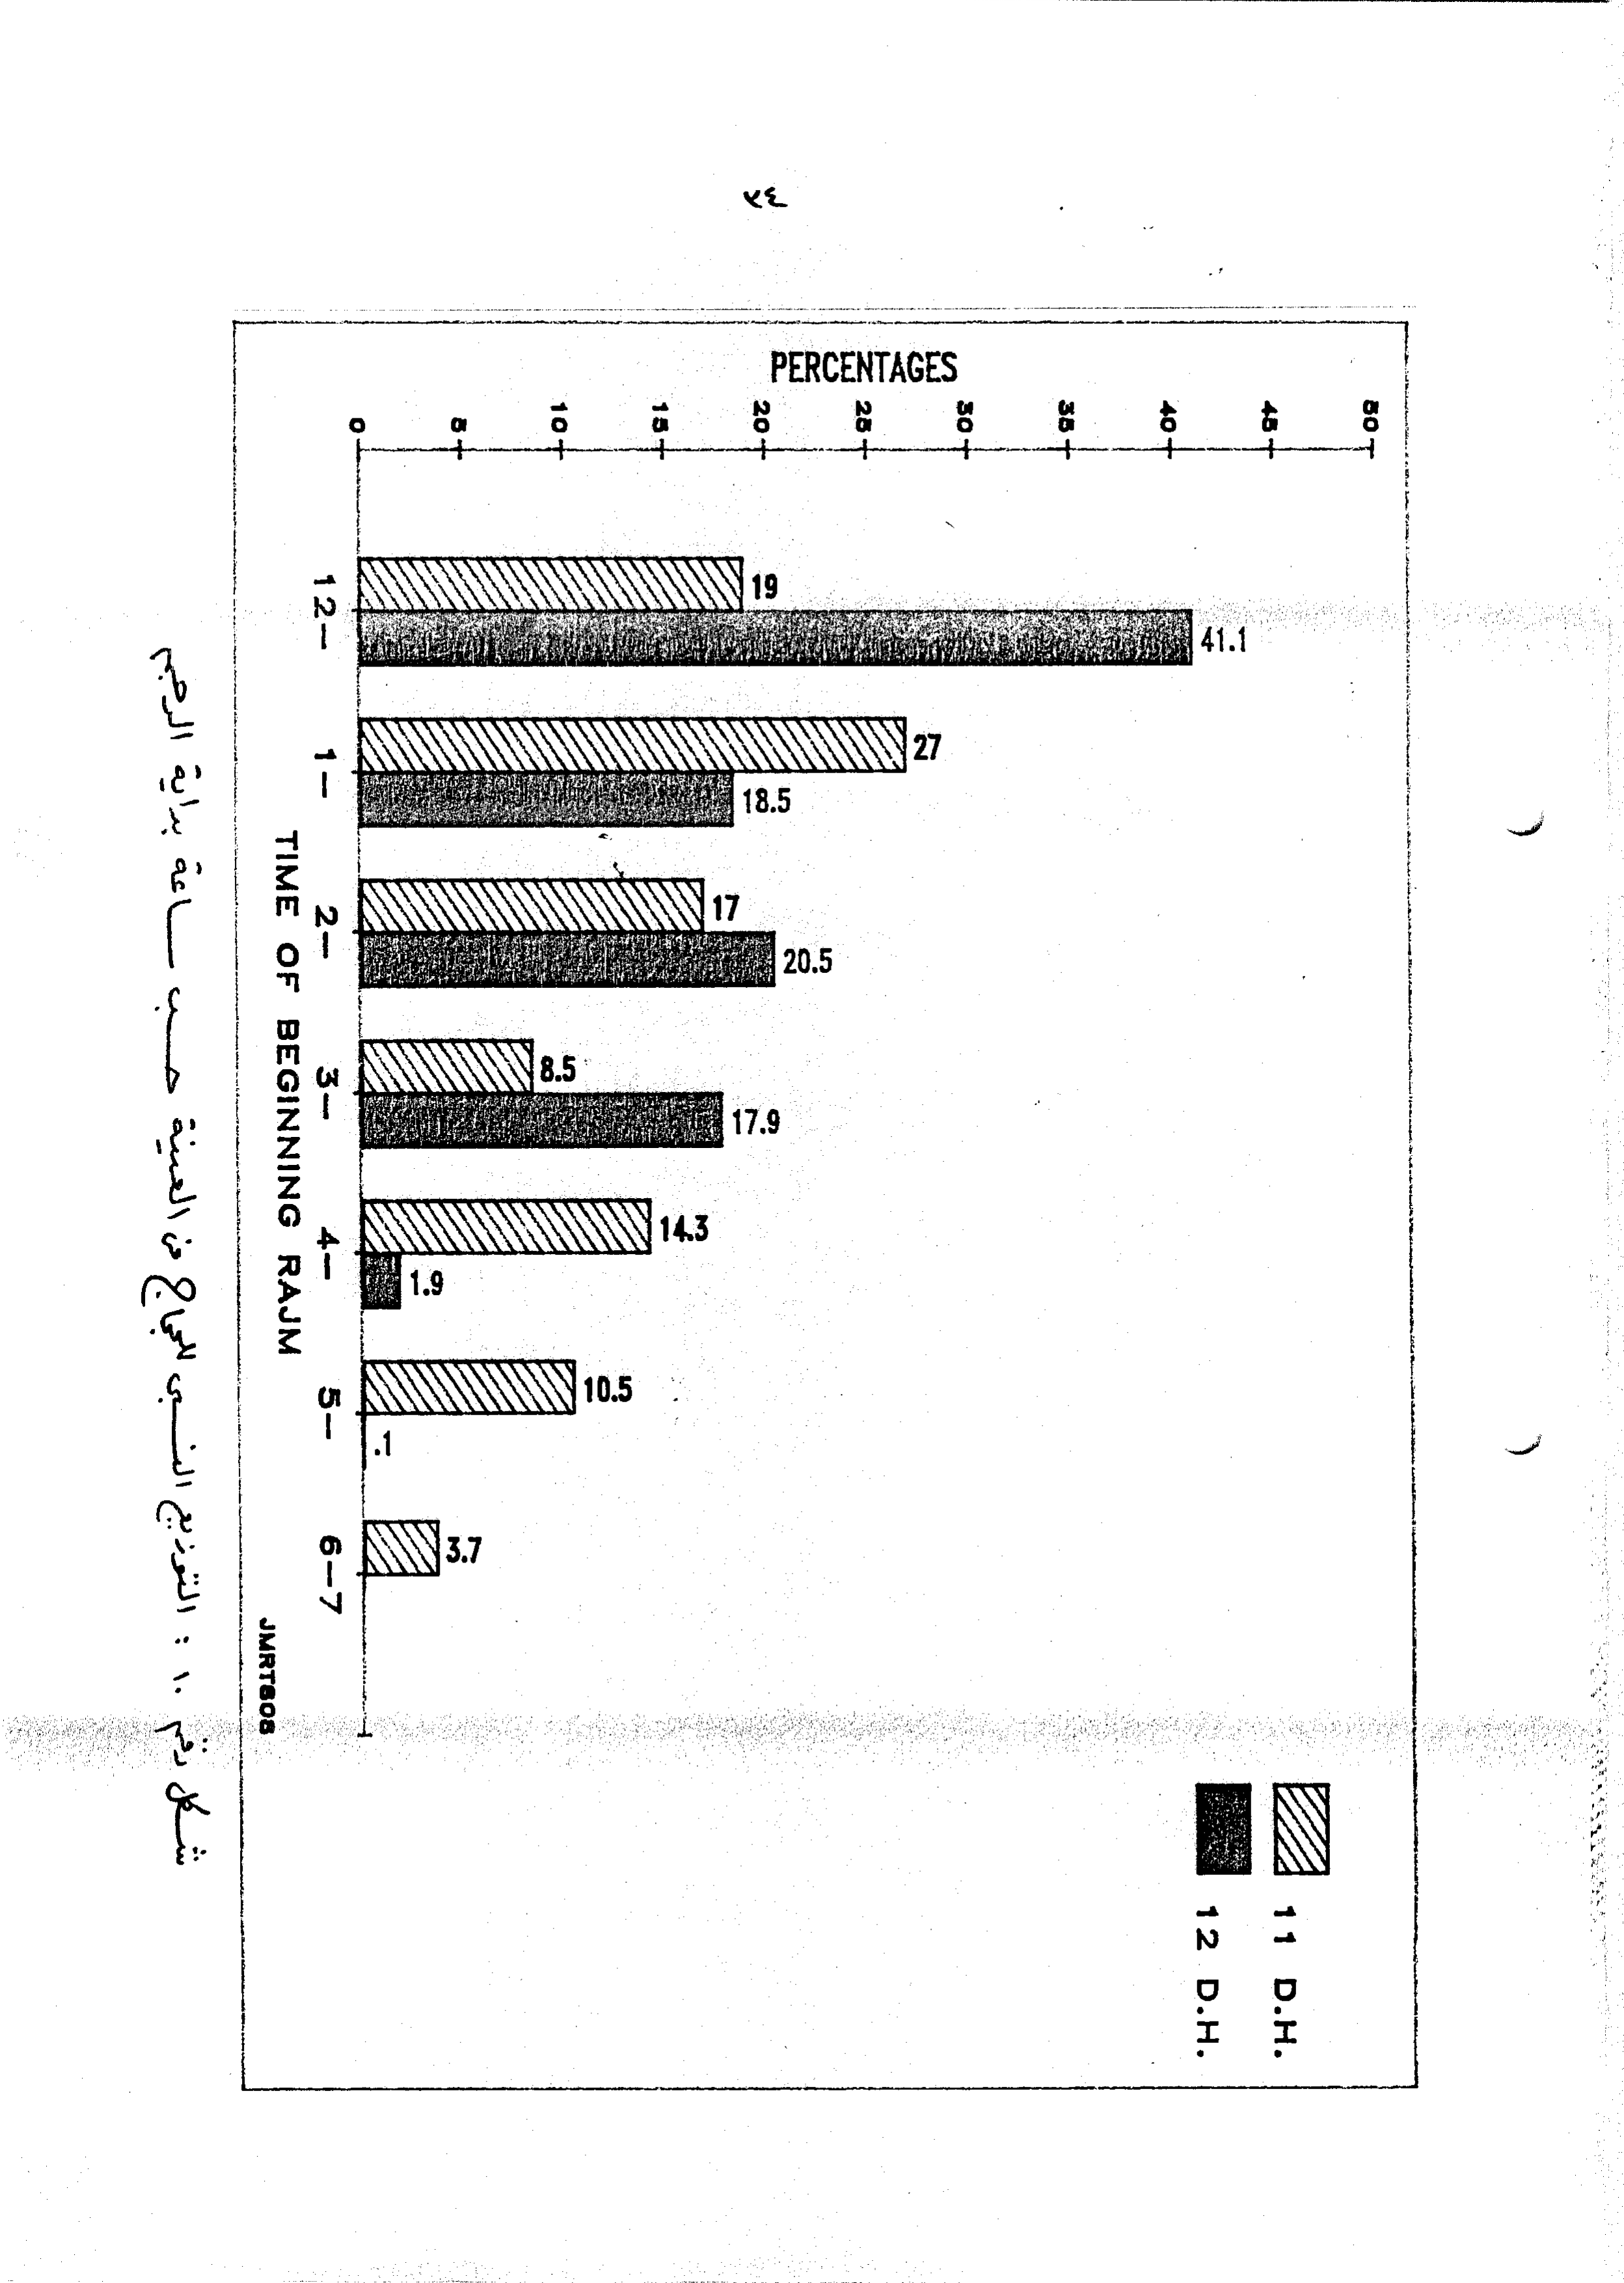 ٣٤
PERCENTAGES
50
45
40
35
30
25
20
15
10
5
0
19
41.1
27
18.5
17
20.5
8.5
17.9
14.3
1.9
10.5
.1
3.7
12-
1-
2-
3-
4-
5-
6-7
TIME OF BEGINNING RAJM
JMRTS08
11 D.H.
12 D.H.
شكل رقم ١٠ : التوزيع النسبي للحجاج من العينة حسب ساعة بداية الرجم